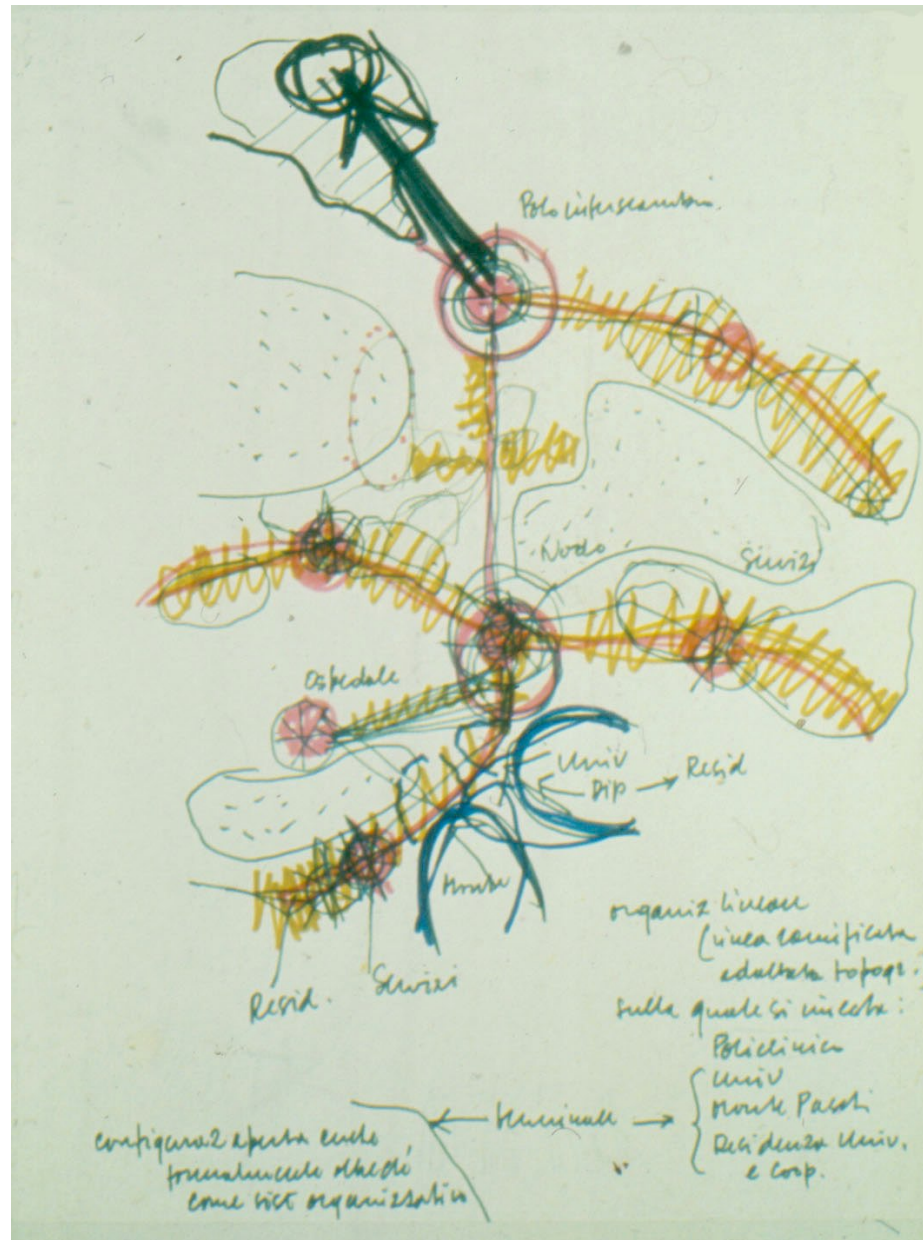 Polo interscambio.
Nodo
Servizi
Ospedale
Univ
Dip → Resid
Monte
Resid.
Servizi
organiz lineare
(linea ramificata
adattata topogr.
sulla quale si innesta:
Policlinico
Univ
Monte Paschi
Residenza Univ.
e coop.
← terminale →
configuraz aperta anche
formalmente oltre che
come sist organizzativo